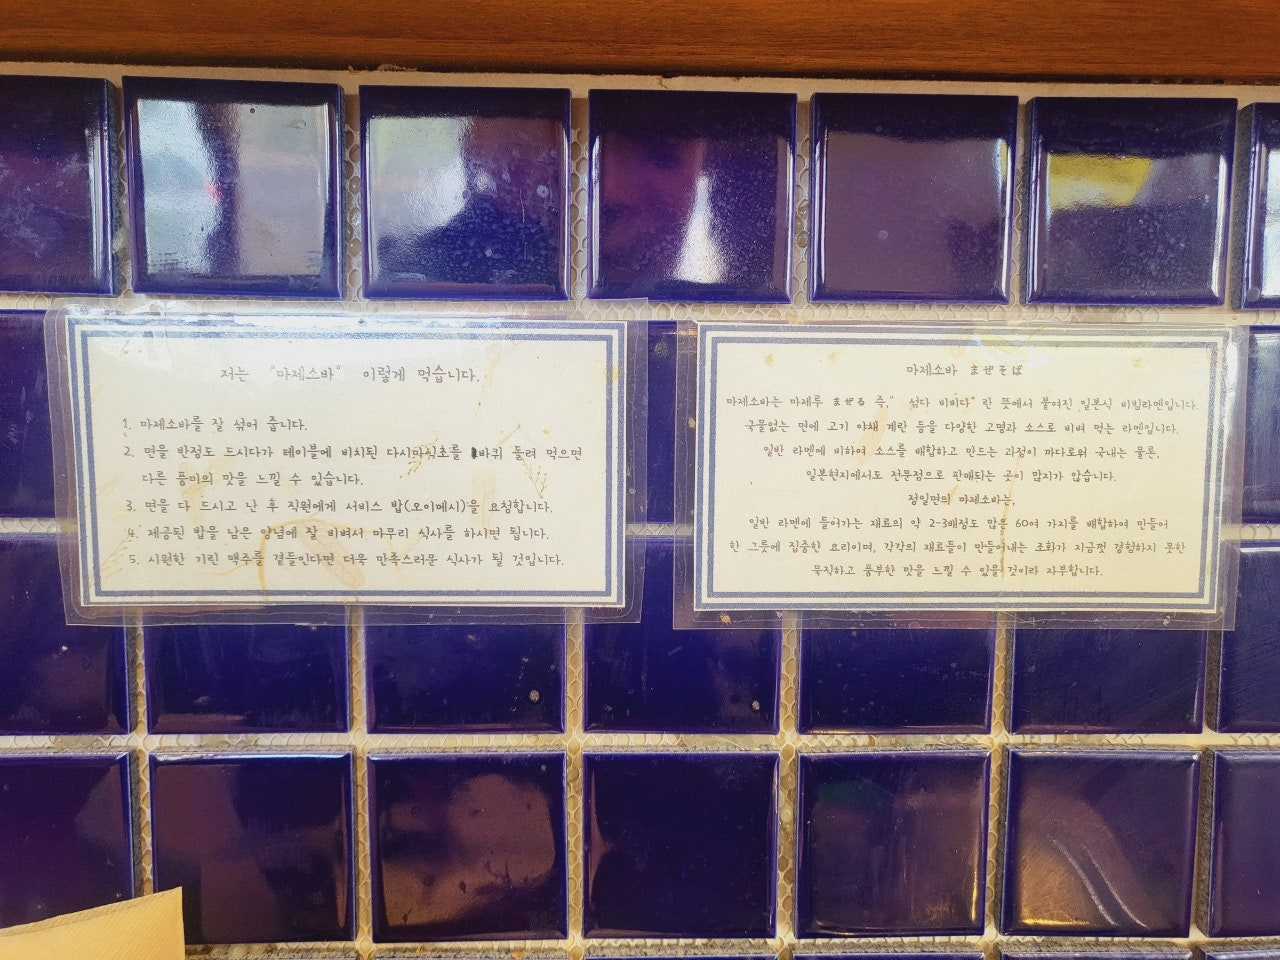 저는 "마제소바" 이렇게 먹습니다.
1. 마제소바를 잘 섞어 줍니다.
2. 면을 반정도 드시다가 테이블에 비치된 다시마식초를 바퀴 돌려 먹으면
다른 풍미의 맛을 느낄 수 있습니다.
3. 면을 다 드시고 난 후 직원에게 서비스 밥(오이메시)을 요청합니다.
4. 제공된 밥을 남은 양념에 잘 비벼서 마무리 식사를 하시면 됩니다.
5. 시원한 기린 맥주를 곁들인다면 더욱 만족스러운 식사가 될 것입니다.
마제소바 まぜそば
마제소바는 마제루 まぜる 즉," 섞다 비비다" 란 뜻에서 붙여진 일본식 비빔라멘입니다.
국물없는 면에 고기 야채 계란 등을 다양한 고명과 소스로 비벼 먹는 라멘입니다.
일반 라멘에 비하여 소스를 배합하고 만드는 과정이 까다로워 국내는 물론,
일본현지에서도 전문점으로 판매되는 곳이 많지가 않습니다.
정일면의 마제소바는,
일반 라멘에 들어가는 재료의 약 2-3배정도 많은 60여 가지를 배합하여 만들어
한 그릇에 집중한 요리이며, 각각의 재료들이 만들어내는 조화가 지금껏 경험하지 못한
묵직하고 풍부한 맛을 느낄 수 있을 것이라 자부합니다.